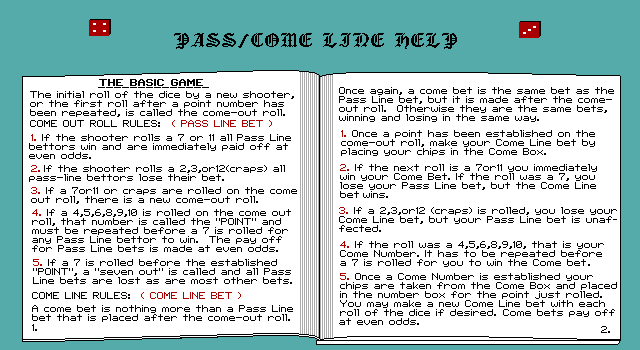 PASS/COME LINE HELP
THE BASIC GAME
The initial roll of the dice by a new shooter,
or the first roll after a point number has
been repeated, is called the come-out roll.
COME OUT ROLL RULES: ( PASS LINE BET )
1. If the shooter rolls a 7 or 11 all Pass Line
bettors win and are immediately paid off at
even odds.
2. If the shooter rolls a 2,3,or12(craps) all
pass-line bettors lose their bet.
3. If a 7or11 or craps are rolled on the come
out roll, there is a new come-out roll.
4. If a 4,5,6,8,9,10 is rolled on the come out
roll, that number is called the "POINT" and
must be repeated before a 7 is rolled for
any Pass Line bettor to win. The pay off
for Pass Line bets is made at even odds.
5. If a 7 is rolled before the established
"POINT", a "seven out" is called and all Pass
Line bets are lost as are most other bets.
COME LINE RULES: ( COME LINE BET )
A come bet is nothing more than a Pass Line
bet that is placed after the come-out roll.
1.
Once again, a come bet is the same bet as the
Pass Line bet, but it is made after the come-
out roll. Otherwise they are the same bets,
winning and losing in the same way.
1. Once a point has been established on the
come-out roll, make your Come Line bet by
placing your chips in the Come Box.
2. If the next roll is a 7or11 you immediately
win your Come Bet. If the roll was a 7, you
lose your Pass Line bet, but the Come Line
bet wins.
3. If a 2,3,or12 (craps) is rolled, you lose your
Come Line bet, but your Pass Line bet is unaf-
fected.
4. If the roll was a 4,5,6,8,9,10, that is your
Come Number. It has to be repeated before
a 7 is rolled for you to win the Come bet.
5. Once a Come Number is established your
chips are taken from the Come Box and placed
in the number box for the point just rolled.
You may make a new Come Line bet with each
roll of the dice if desired. Come bets pay off
at even odds.
2.